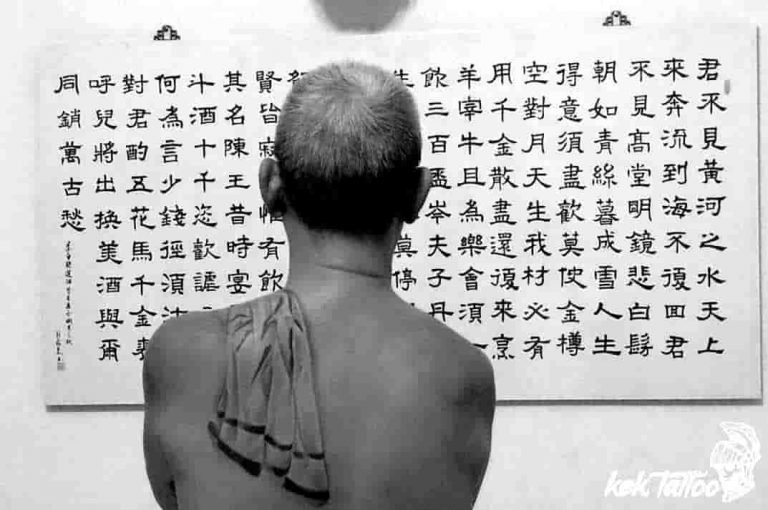 君不見黃河之水天上
來奔流到海不復回君
不見高堂明鏡悲白髮
朝如青絲暮成雪人生
得意須盡歡莫使金樽
空對月天生我材必有
用千金散盡還復來烹
羊宰牛且為樂會須一
飲三百盃岑夫子丹
生莫停
賢皆寂惟有飲
其名陳王昔時宴
斗酒十千恣歡謔
何為言少錢徑須沽
對君酌五花馬千金裘
呼兒將出換美酒與爾
同銷萬古愁
kek Tattoo